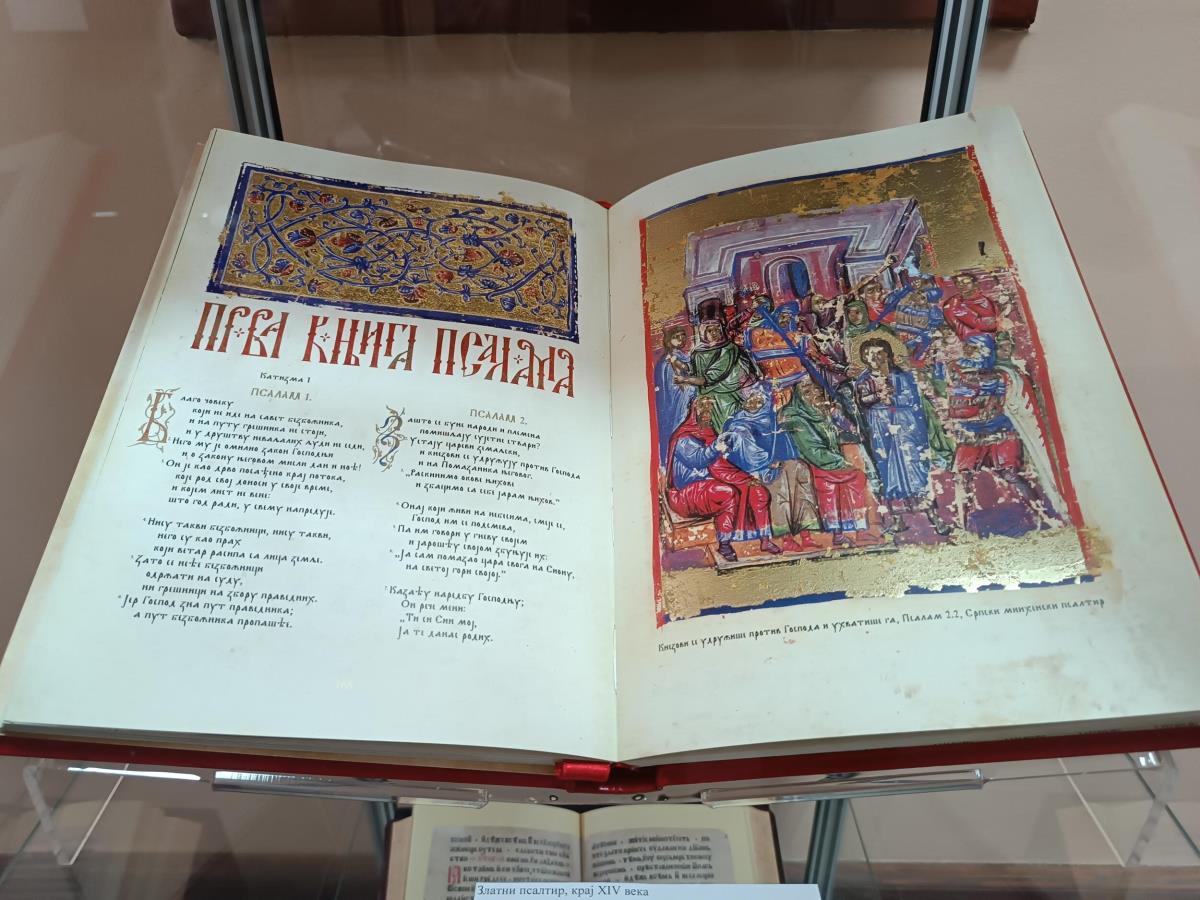 ПРВА КЊИГА ПСАЛАМА
Катизма 1
ПСАЛАМ 1.
Благо човеку
који не иде на савет безбожника,
и на путу грешника не стоји,
и у друштву неваљалих људи не седи,
²Него му је омилио закон Господњи
и о закону његовом мисли дан и ноћ!
³Он је као дрво посађено крај потока,
које род свој доноси у своје време,
и којем лист не вене:
што год ради, у свему напредује.
⁴Нису такви безбожници, нису такви,
него су као прах
који ветар расипа са лица земље.
⁵Зато се неће безбожници
одржати на суду,
ни грешници на збору праведних.
⁶Јер Господ зна пут праведника;
а пут безбожника пропашће.
ПСАЛАМ 2.
Зашто се буне народи и племена
помишљају сујетне ствари?
²Устају цареви земаљски,
и кнезови се удружују против Господа
и на Помазаника његовог.
³„Раскинимо окове њихове
и збацимо са себе јарам њихов.“
⁴Онај који живи на небесима, смеје се,
Господ им се подсмева,
⁵Па им говори у гневу својем
и јарошћу својом збуњује их:
⁶„Ја сам помазао цара свога на Сиону,
на светој гори својој.“
⁷Казаћу наредбу Господњу;
Он рече мени:
„Ти си Син мој,
Ја те данас родих.
Кнезови се удружише против Господа и ухватише га, Псалам 2.2, Српски минхенски псалтир
Златни псалтир, крај XIV века